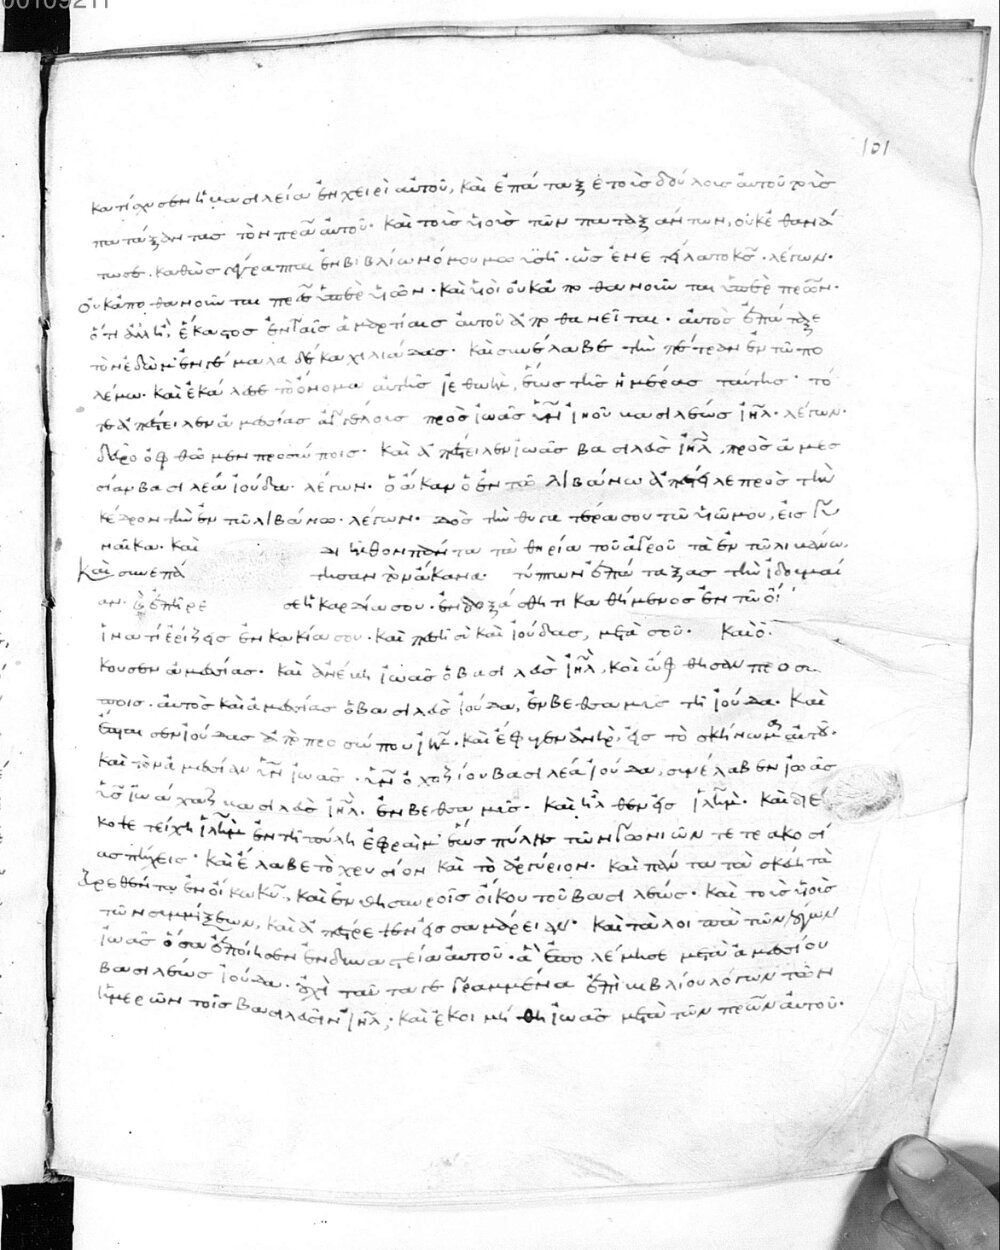 00109211
101
κατίσχυσεν ἡ βασιλεία ἐν χειρὶ αὐτοῦ, καὶ ἐπάταξε τοὺς δούλους αὐτοῦ τοὺς
πατάξαντας τὸν πρα αὐτοῦ. καὶ τοὺς υἱοὺς τῶν παταξάντων, οὐκ ἐθανά
τωσε. καθὼς γέγραπται ἐν βιβλίω νόμου μωυσῆ. ὡς ἐνετείλατο κς. λέγων.
οὐκ ἀποθανοῦνται πρες ὑπὲρ υἱῶν. καὶ υἱοὶ οὐκ ἀποθανοῦνται ὑπὲρ πρων.
ὅτι ἀλλ' ἢ, ἕκαστος ἐν ταῖς ἁμαρτίαις αὐτοῦ ἀποθανεῖται. αὐτὸς ἐπάταξε
τὸν ἐδὼμ ἐν γεμαλα δέκα χιλιάδας. καὶ συνέλαβε τὴν πέτραν ἐν τῶ πο
λέμω. καὶ ἐκάλεσε τὸ ὄνομα αὐτῆς ἰεθωὴλ, ἕως τῆς ἡμέρας ταύτης. τό
τε ἀπέστειλεν ἀμεσίας ἀγγέλους πρὸς ἰωὰς υἱὸν ἰηοῦ βασιλέως ιηλ. λέγων.
δεῦρο ὀφθῶμεν προσώποις. καὶ ἀπέστειλεν ἰωὰς βασιλεὺς ιηλ, πρὸς ἀμεσ
σίαν βασιλέα ἰούδα. λέγων. ὁ ἄκαν ὁ ἐν τῶ λιβάνω ἀπέστειλε πρὸς τὴν
κέδρον τὴν ἐν τῶ λιβάνω. λέγων. δὸς τὴν θυγατέρα σου τῶ υἱῶ μου, εἰς γυ
ναῖκα. καὶ διῆλθον πάντα τὰ θηρία τοῦ ἀγροῦ τὰ ἐν τῶ λιβάνω.
καὶ συνεπά τησαν τὸν ἄκανα. τύπτων ἐπάταξας τὴν ἰδουμαί
αν. καὶ ἐπῆρέ σε ἡ καρδία σου. ἐνδοξάσθητι καθήμενος ἐν τῶ οἴ
ἱνατί ἐρίζεις ἐν κακία σου. καὶ πεσῆ σὺ καὶ ἰούδας, μετὰ σοῦ. καὶ οὐ
κουσεν ἀμεσίας. καὶ ἀνέβη ἰωὰς ὁ βασιλεὺς ιηλ, καὶ ὤφθησαν προσω
ποις. αὐτὸς καὶ ἀμεσίας ὁ βασιλεὺς ἰούδα, ἐν βεθσαμὶς τῆ ἰούδα. καὶ
ἔπταισεν ἰούδας ἀπὸ προσώπου ιηλ. καὶ ἔφυγεν ἀνὴρ, εἰς τὸ σκήνωμα αὐτοῦ.
καὶ τὸν ἀμεσίαν υἱὸν ἰωὰς. υἱὸν ὀχοζίου βασιλέα ἰούδα, συνέλαβεν ἰωὰς
υἱὸς ἰωάχαζ βασιλεὺς ιηλ. ἐν βεθσαμὶς. καὶ ἦλθεν εἰς ιλημ. καὶ διέ
κοψε τείχη ιλημ ἐν τῆ πύλη ἐφραὶμ ἕως πύλης τῶν γωνιῶν τετρακοσί
ας πήχεις. καὶ ἔλαβε τὸ χρυσίον καὶ τὸ ἀργύριον. καὶ πάντα τὰ σκεύη τὰ
εὑρεθέντα ἐν οἴκω κυ, καὶ ἐν θησαυροῖς οἴκου τοῦ βασιλέως. καὶ τοὺς υἱοὺς
τῶν συμμίξεων, καὶ ἀπέστρεψεν εἰς σαμάρειαν. καὶ τὰ λοιπὰ τῶν λόγων
ἰωὰς ὅσα ἐποίησεν ἐν δυναστεία αὐτοῦ. ἃ ἐπολέμησε μετὰ ἀμεσίου
βασιλέως ἰούδα. οὐχὶ ταῦτα γεγραμμένα ἐπὶ βιβλίου λόγων τῶν
ἡμερῶν τοῖς βασιλεῦσιν ιηλ; καὶ ἐκοιμήθη ἰωὰς μετὰ τῶν πρων αὐτοῦ.